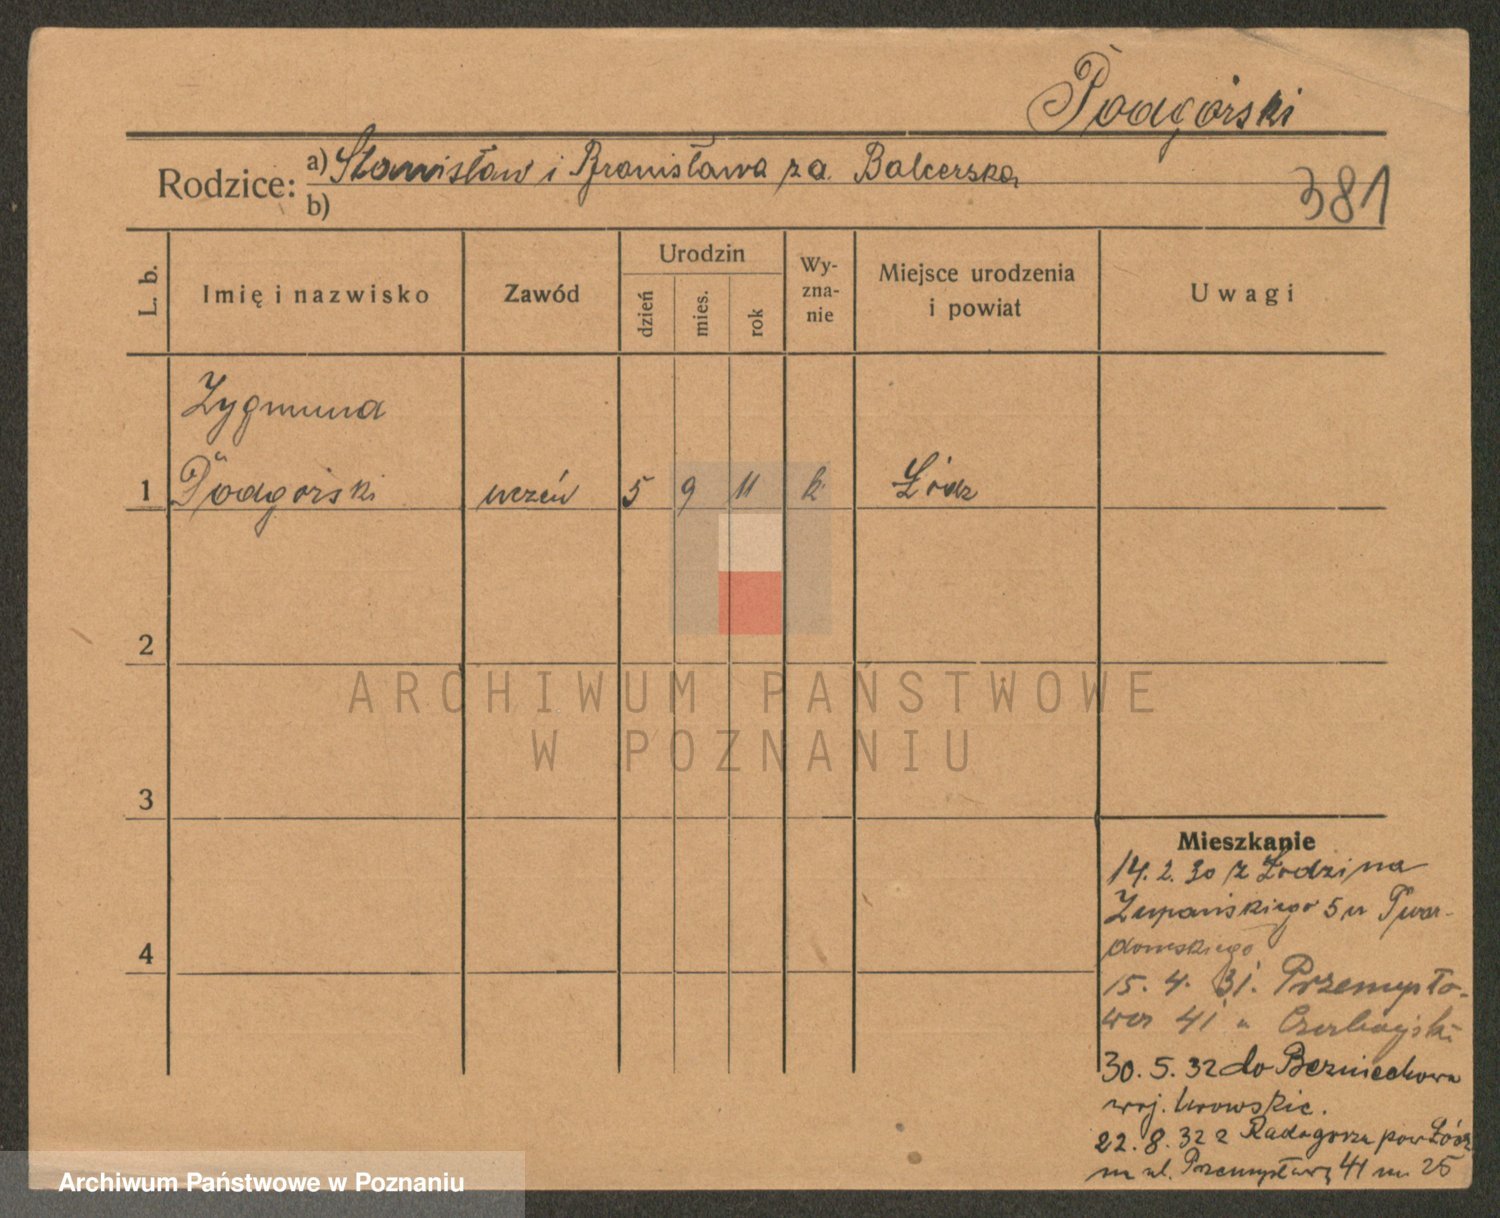 Podgórski
Rodzice: a) Stanisław i Bronisława za Balcerska
b)
381
L. b.
Imię i nazwisko
Zawód
Urodzin
dzień
mies.
rok
Wy-
zna-
nie
Miejsce urodzenia
i powiat
Uwagi
Zygmund
1 Podgórski uczeń 5 9 11 k Łódz
2
ARCHIWUM PAŃSTWOWE
W POZNANIU
3
4
Mieszkanie
14. 2. 30 z Łodzi na
Żupańskiego 5 u Twar-
dowskiego
15. 4. 31. Przemysło-
wa 41 u
30. 5. 32 do Bezmiechowa
woj. lwowskie.
22. 8. 32 z Radogoszcz pow Łódz
na ul. Przemysłową 41 m 25
Archiwum Państwowe w Poznaniu